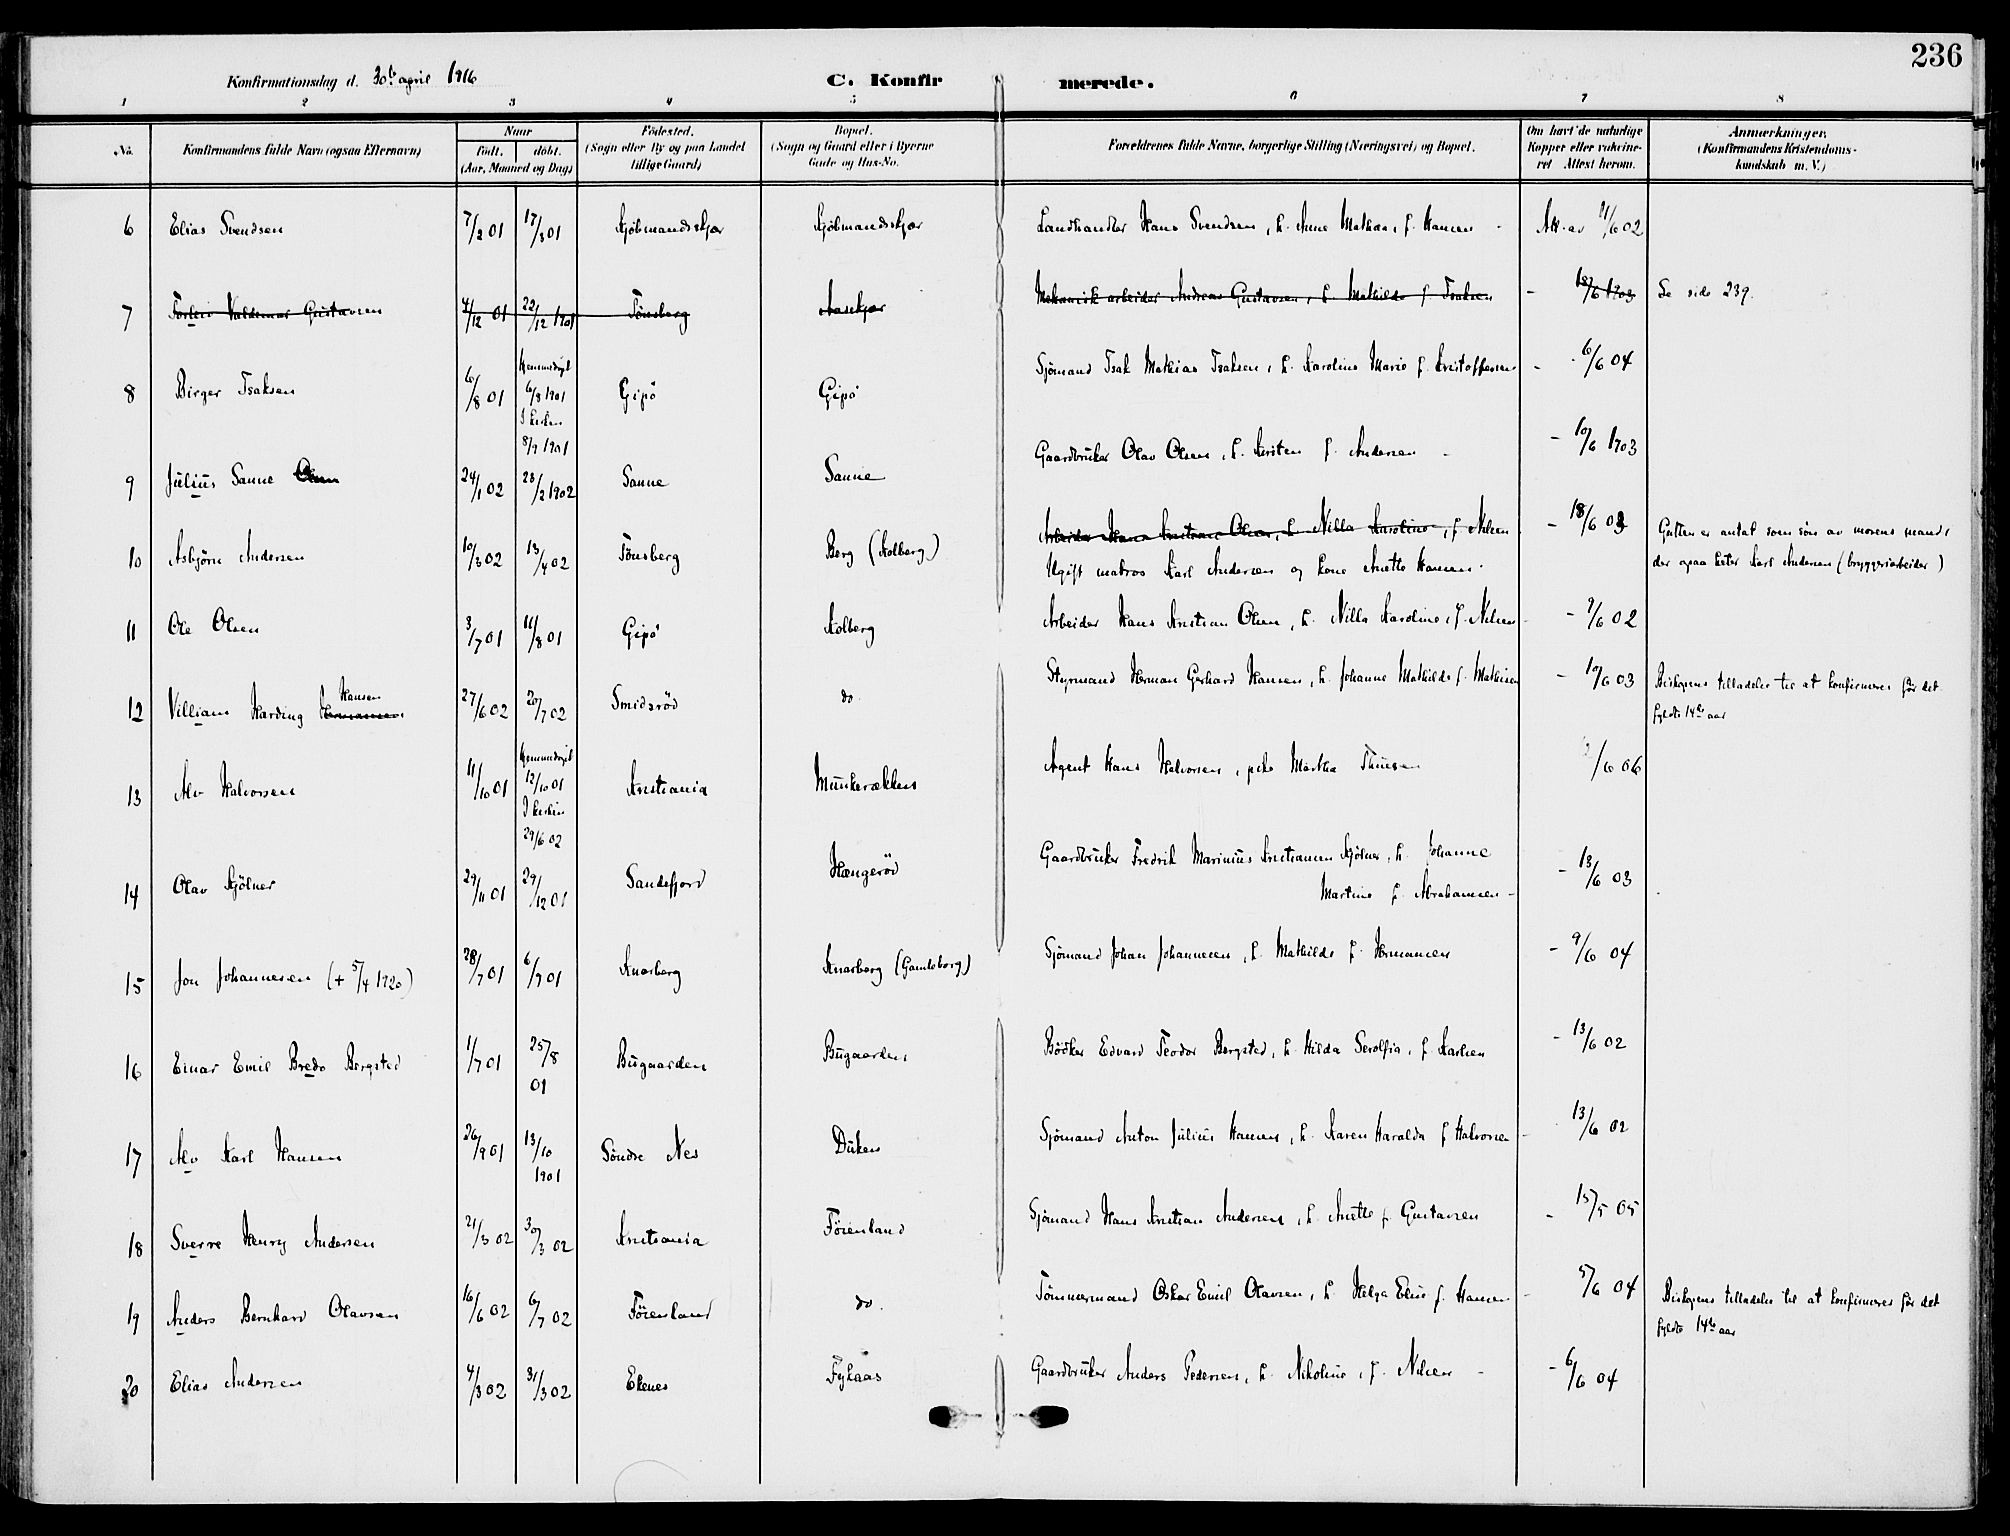 236
Konfirmationsdag d. 30te april 1916
C. Konfirmerede.
1 2 3 4 5 6 7 8
No.
Konfirmandens fulde Navn (ogsaa Efternavn)
Naar
født. døbt.
(Aar, Maaned og Dag)
Fødested.
(Sogn eller By og paa Landet
tillige Gaard)
Bopæl.
(Sogn og Gaard eller i Byerne
Gade og Hus-No.
Forældrenes fulde Navne, borgerlige Stilling (Næringsvei) og Bopæl.
Om havt de naturlige
Kopper eller vakcine-
ret Attest herom.
Anmærkninger.
(Konfirmandens Kristendoms-
kundskab m. V.)
6 Elias Svendsen 7/2 01 17/3 01 Kjöbmandskjær Kjöbmandskjær Landhandler Hans Svendsen, h. Anne Mathea, f. Hansen - Att. av 11/6 02
7 Torleiv Valdemar Gustavsen 4/12 01 22/12 1901 Tönsberg Aasekjær Mekanisk arbeider Andreas Gustavsen, h. Mathilde f. Isaksen - 18/6 1903 Se side 239.
8 Birger Isaksen 6/8 01 Hjemmedöpt 6/8 1901 I kirken 8/9 1901 Gipö Gipö Sjömand Isak Mathias Isaksen, h. Karoline Marie f. Kristoffersen - 6/6 04
9 Julius Sanne Olsen 24/1 02 23/2 1902 Sanne Sanne Gaardbruker Olav Olsen, h. Kirsten f. Andersen - 10/6 1903
10 Asbjörn Andersen 10/3 02 13/4 02 Tönsberg Berg (Kolberg) Arbeider Hans Kristian Olsen, h. Nilla Karoline, f. Nilsen - 18/6 03 Gutten er antat som sön av morens mand,
Ugift matros Karl Andersen og kone Anette Hansen. der ogsaa heter Karl Andersen (bryggeriarbeider)
11 Ole Olsen 3/7 01 11/8 01 Gipö Kolberg Arbeider Hans Kristian Olsen, h. Nilla Karoline, f. Nilsen - 9/6 02
12 Villiam Harding Hermansen Hansen 27/6 02 20/7 02 Smidsröd do. Styrmand Herman Gerhard Hansen, h. Johanne Mathilde f. Mathisen - 10/6 03 Biskopens tilladelse til at konfirmeres för det
fyldte 14de aar
13 Alv Halvorsen 11/10 01 Hjemmedöpt 12/10 01 I kirken 29/6 02 Kristiania Munkerekken Agent Hans Halvorsen, pike Martha Thuesen /6 06
14 Olav Kjölner 29/11 01 29/12 01 Sandefjord Hængeröd Gaardbruker Fredrik Marinius Kristiansen Kjölner, h. Johanne
Martine f. Abrahamsen - - 13/6 03
15 Jon Johannesen (+ 5/4 1920) 28/7 01 6/9 01 Knarberg Knarberg (Gamleborg) Sjömand Johan Johannesen, h. Mathilde f. Hermansen - 9/6 04
16 Einar Emil Bredo Bergsted 1/7 01 25/8 01 Bugaarden Bugaarden Bödker Edvard Teodor Bergsted, h. Hilda Serolfia, f. Karlsen - 13/6 02
17 Alv Karl Hansen 26/9 01 13/10 1901 Söndre Nes Duken Sjömand Anton Julius Hansen, h. Karen Haralda f. Halvorsen - 13/6 02
18 Sverre Henry Andersen 21/3 02 30/3 02 Kristiania Föienland Sjömand Hans Kristian Andersen, h. Anette f. Gustavsen - 15/5 05
19 Anders Bernhard Olavsen 16/6 02 6/7 02 Föienland do. Tömmermand Oskar Emil Olavsen, h. Helga Elise f. Hansen - 5/6 04 Biskopens tilladelse til at konfirmeres för det
fyldte 14de aar
20 Elias Andersen 4/3 02 31/3 02 Ekenes Fykaas Gaardbruker Anders Pedersen, h. Nikoline, f. Nilsen - 6/6 04